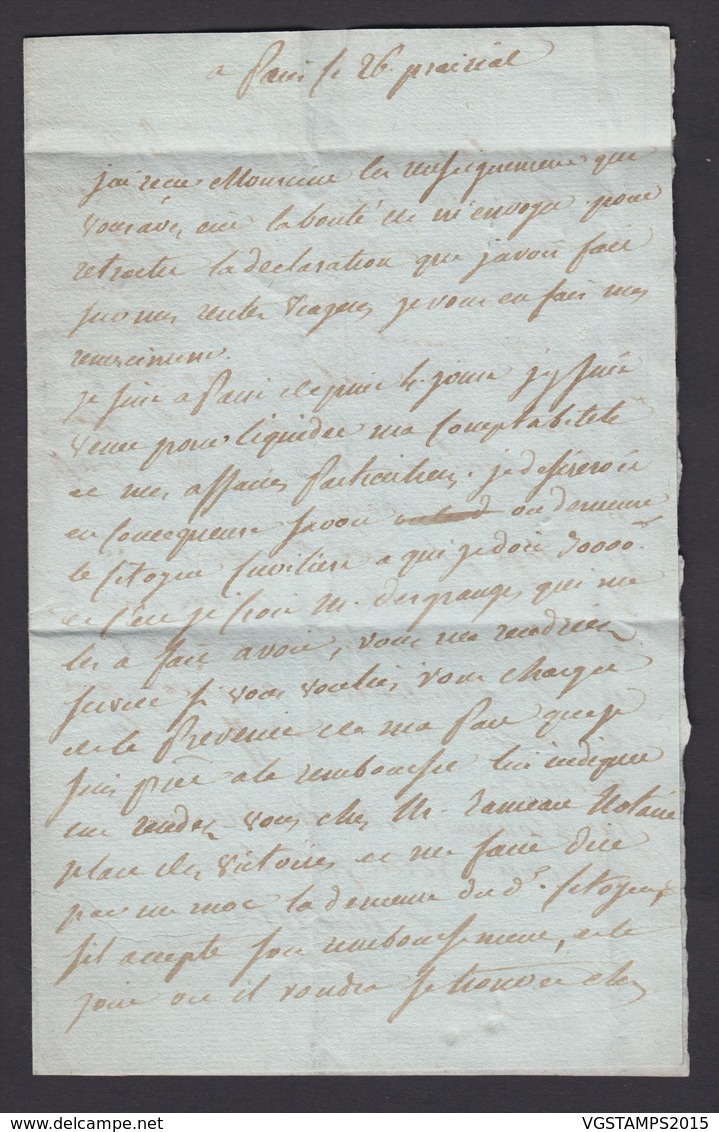 a Paris le 26 prairial
j'ai recu Monsieur les renseignements que
vous avés eue la bonté de m'envoyer pour
retracter la declaration que j'avois fait
sur mes rentes viageres je vous en fais mes
remerciments.
je suis a Paris depuis 4. jours j'y suis
venue pour liquider ma Comptabilité
et mes affaires Particulieres. je desirerois
en Consequence savoir ou demeure
le Citoyen Cuvilier a qui je dois 3000
et c'est je crois M. desgranges qui me
les a fait avoir, vous me rendriez
service si vous vouliés vous charger
de le Prevenir de ma Part que je
suis prêt a le rembourser lui indiquer
un rendez vous chez Mr. Rameau Notaire
place des victoires et me faire dire
par un mot la demeure du dt. Citoyen,
s'il accepte son remboursement, et le
jour ou il voudra se trouver chez
VGSTAMPS2015
www.delcampe.net